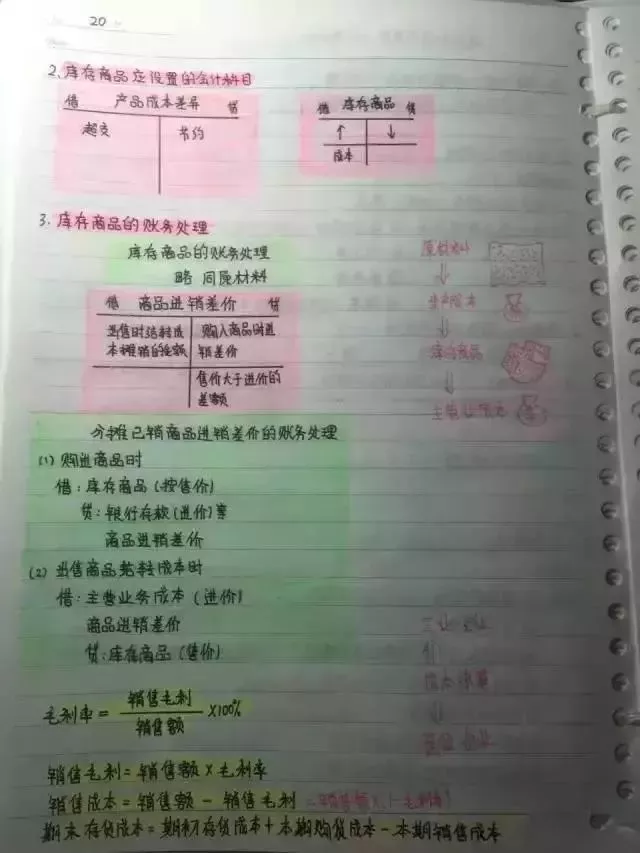 20
2. 库存商品应设置的会计科目
借 产品成本差异 贷
超支 节约
借 库存商品 贷
↑ ↓
成本
3. 库存商品的账务处理
库存商品的账务处理
略 同原材料
借 商品进销差价 贷
出售时结转进 购入商品时进
本摊销的差额 销差价
售价大于进价的
差额
原材料
↓
生产成本
↓
库存商品
↓
分摊已销商品进销差价的账务处理
(1) 购进商品时
借:库存商品(按售价)
贷:银行存款(进价)等
商品进销差价
(2) 出售商品结转成本时
借:主营业务成本(进价)
商品进销差价
贷:库存商品(售价)
毛利率 = 销售毛利/销售额 ×100%
销售毛利 = 销售额 × 毛利率
销售成本 = 销售额 - 销售毛利 = 销售额×(1-毛利率)
期末存货成本 = 期初存货成本 + 本期购货成本 - 本期销售成本